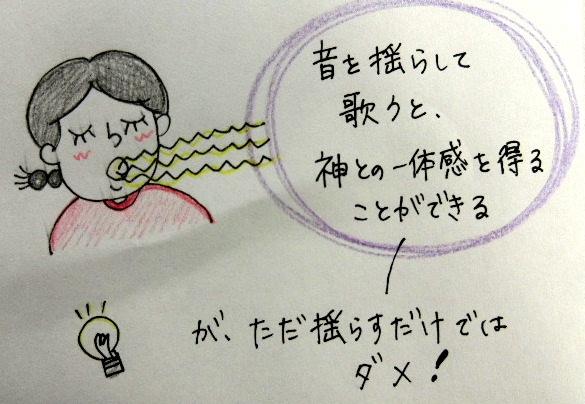 音を揺らして
歌うと、
神との一体感を得る
ことができる
が、ただ揺らすだけでは
ダメ!